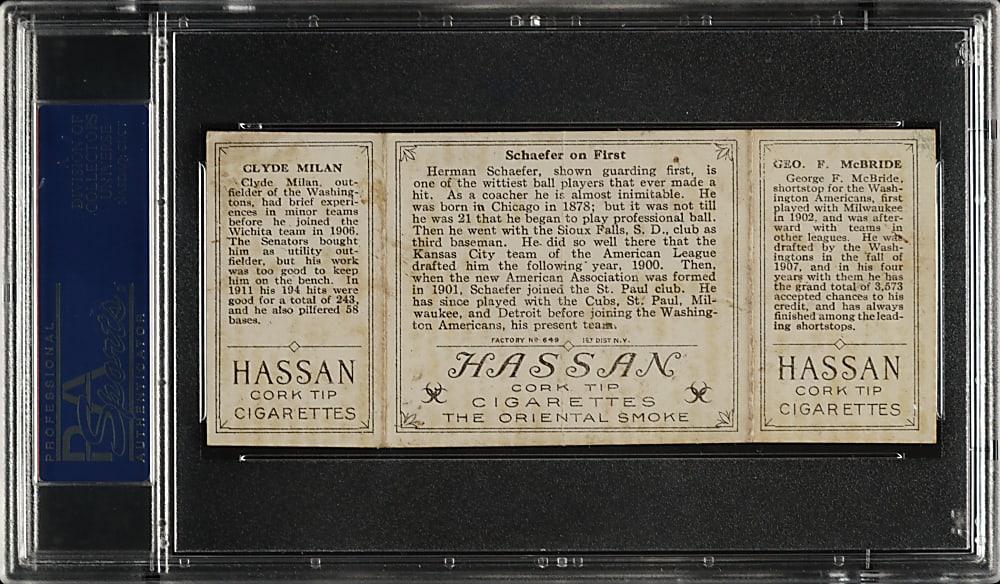 A
DIVISION OF
COLLECTORS
UNIVERSE
NASDAQ: CLCT
PROFESSIONAL
PSA
Sports
AUTHENTICATOR
CLYDE MILAN
Clyde Milan, out-
fielder of the Washing-
tons, had brief experi-
ences in minor teams
before he joined the
Wichita team in 1906.
The Senators bought
him as utility out-
fielder, but his work
was too good to keep
him on the bench. In
1911 his 194 hits were
good for a total of 243,
and he also pilfered 58
bases.
HASSAN
CORK TIP
CIGARETTES
Schaefer on First
Herman Schaefer, shown guarding first, is
one of the wittiest ball players that ever made a
hit. As a coacher he is almost inimitable. He
was born in Chicago in 1878; but it was not till
he was 21 that he began to play professional ball.
Then he went with the Sioux Falls, S. D., club as
third baseman. He did so well there that the
Kansas City team of the American League
drafted him the following year, 1900. Then,
when the new American Association was formed
in 1901, Schaefer joined the St. Paul club. He
has since played with the Cubs, St. Paul, Mil-
waukee, and Detroit before joining the Washing-
ton Americans, his present team.
FACTORY NO 649 1ST DIST N.Y.
HASSAN
CORK TIP
CIGARETTES
THE ORIENTAL SMOKE
GEO. F. McBRIDE
George F. McBride,
shortstop for the Wash-
ington Americans, first
played with Milwaukee
in 1902, and was after-
ward with teams in
other leagues. He was
drafted by the Wash-
ingtons in the fall of
1907, and in his four
years with them he has
the grand total of 3,573
accepted chances to his
credit, and has always
finished among the lead-
ing shortstops.
HASSAN
CORK TIP
CIGARETTES